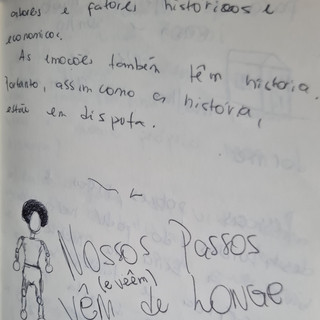 e fatores históricos e
economicos.
As emoções também têm história.
Portanto, assim como a história,
estão em disputa.
Nossos Passos
(e veêm)
vêm de LONGE